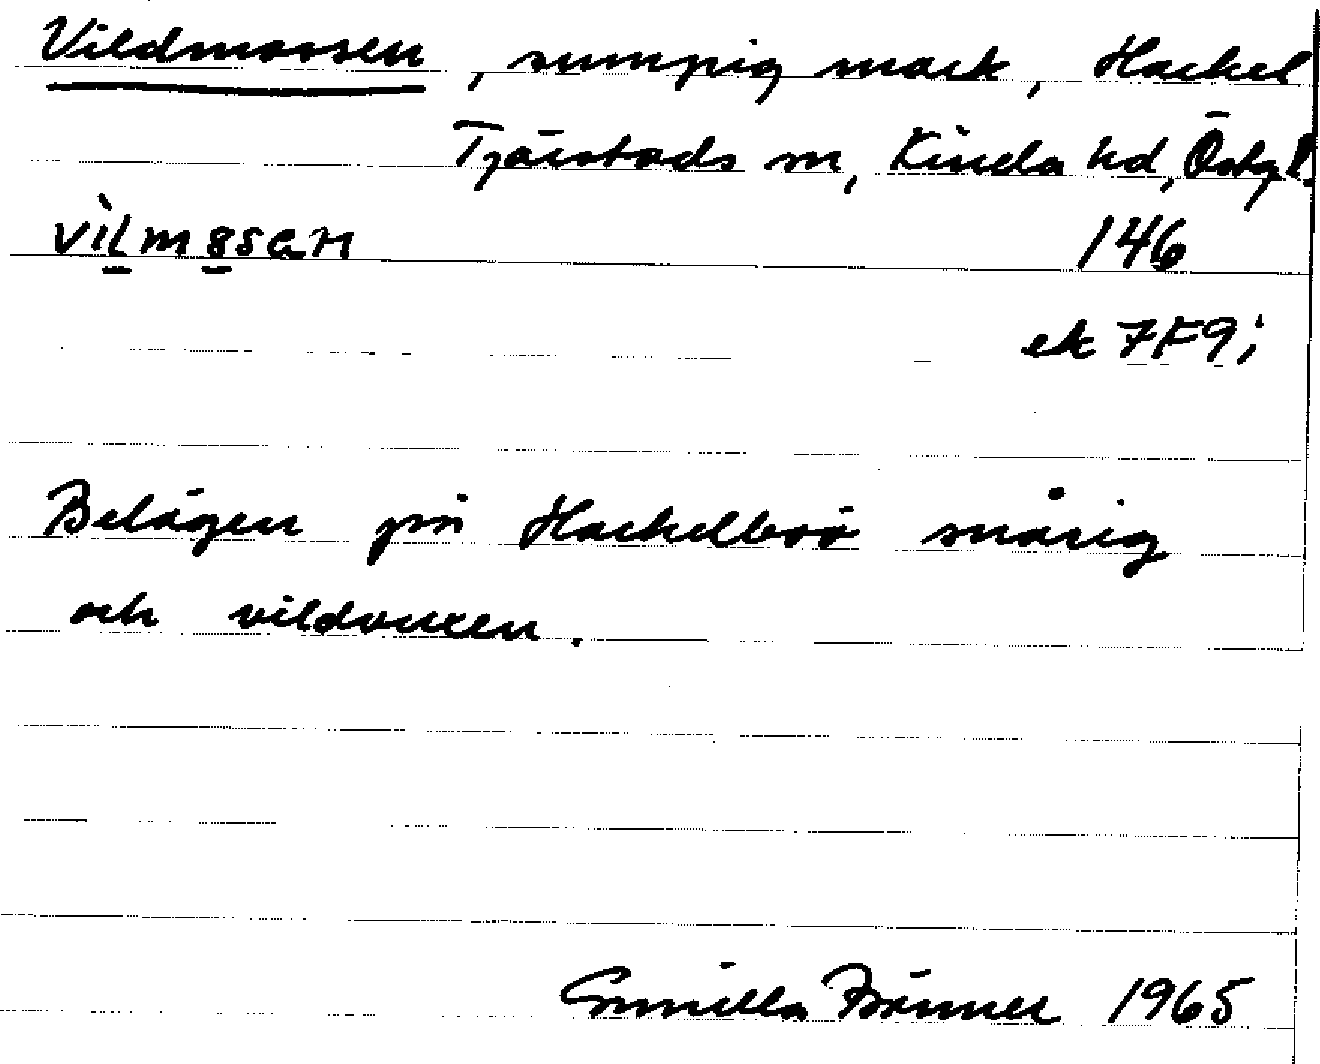 Vildmossen, sumpig mark, Hackel
Tjärstads sn, Kinda hd, Östg l.
vilmosen 146
ek 7F9i
Belägen på Hackelboö snårig
och vildvuxen.
Gunilla Bränner 1965